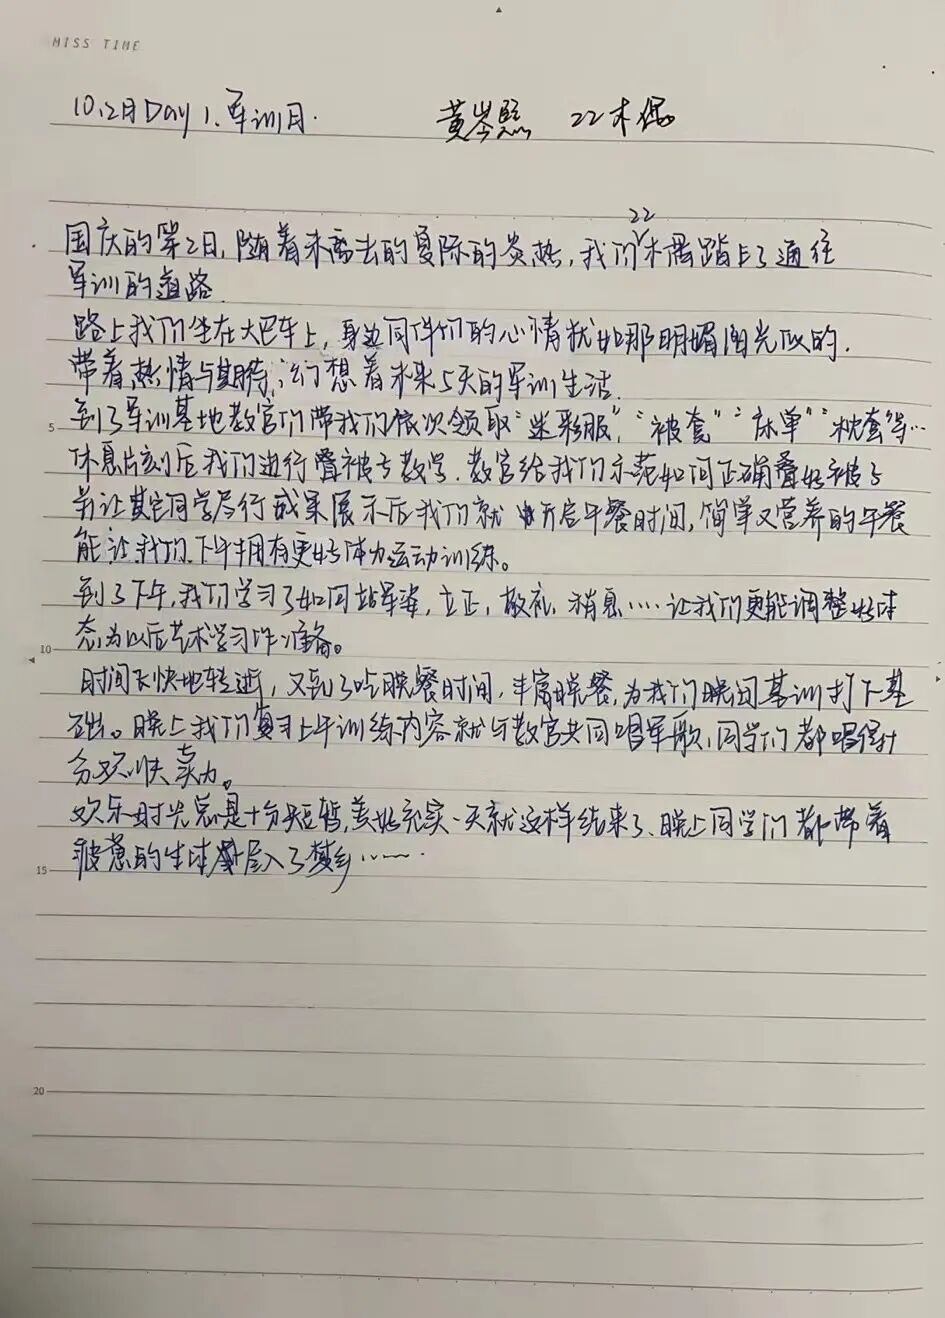 MISS TIME
10.2日Day 1.军训日.
黄岑熙 22木偶
22
国庆的第2日,随着未离去的夏际的炎热,我们木偶踏上了通往
军训的道路.
路上我们坐在大巴车上,身边同伴们的心情犹如那明媚阳光似的.
带着热情与期待,幻想着未来5天的军训生活.
5
到了军训基地教官们带我们依次领取“迷彩服”,“被套”“床单”“枕套等…
休息片刻后我们进行叠被子教学.教官给我们示范如何正确叠好被子
并让其它同学尽行成果展示后我们就开启午餐时间,简单又营养的午餐
能让我们下午拥有更好体力运动训练。
到了下午,我们学习了如何站军姿,立正,敬礼,稍息……让我们更能调整好状
10
态为以后艺术学习作准备。
时间飞快地转逝,又到了吃晚餐时间,丰富晚餐,为我们晚间基训打下基
础。晚上我们复习上午训练内容就与教官共同唱军歌,同学们都唱得十
分欢快卖力。
欢乐时光总是十分短暂,美好充实一天就这样结束了、晚上同学们都带着
15
疲惫的身体入了梦乡……
20